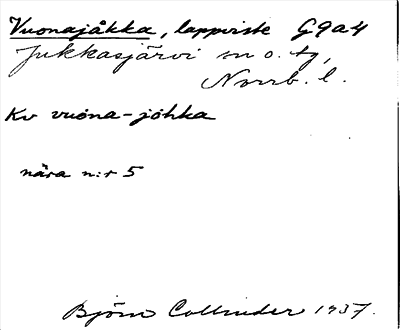 Vuonajåkka, lappviste G9a4
Jukkasjärvi sn o. tg,
Norrb. l.
Kv vuona-johka
nära n:r 5
Björn Collinder 1937.